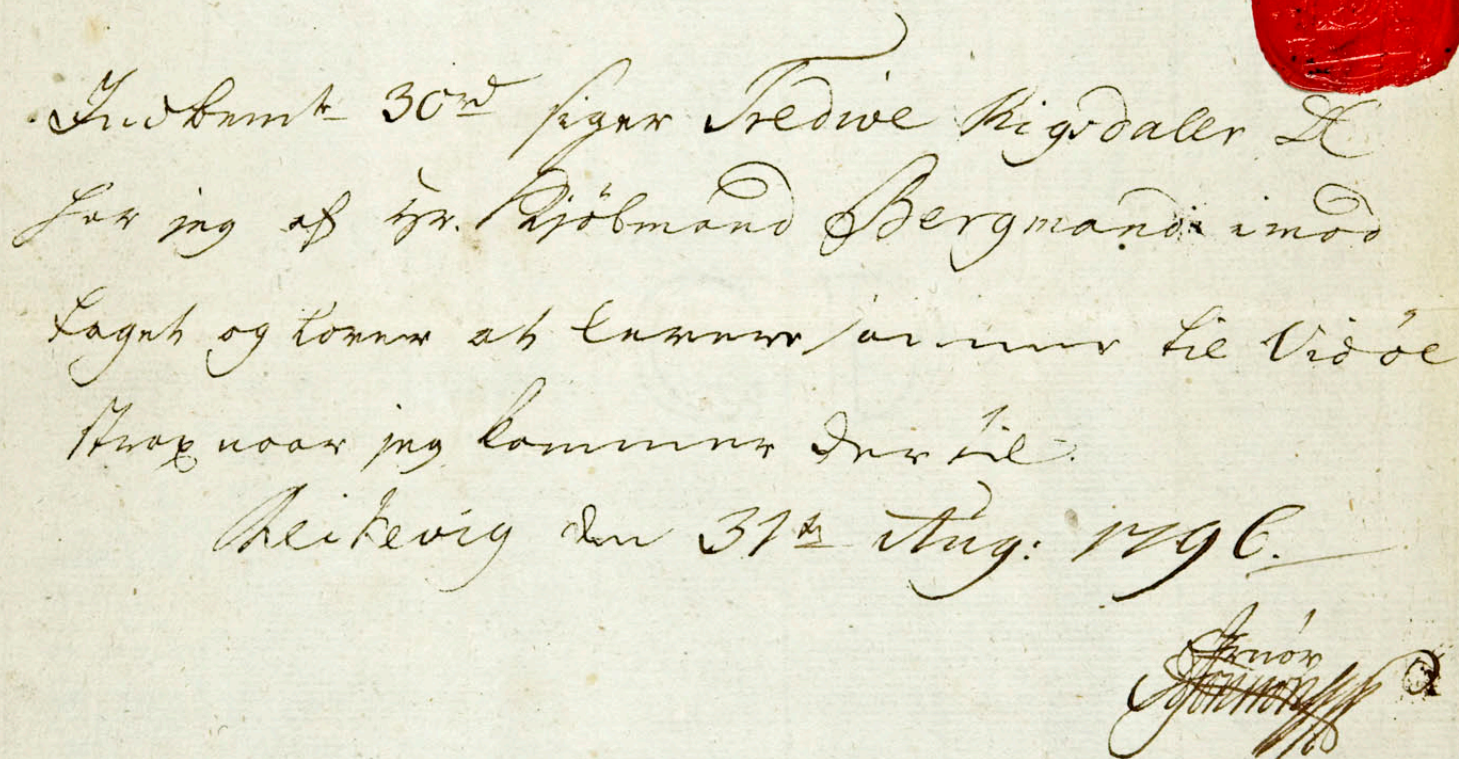 Indbemte 30rd siger Tredive Rigsdaler
har jeg af Hr. Kjöbmand Bergmand imod
taget og lover at levere samme til Vidöe
strax naar jeg kommer der til.
Reikevig den 31te Aug: 1796.